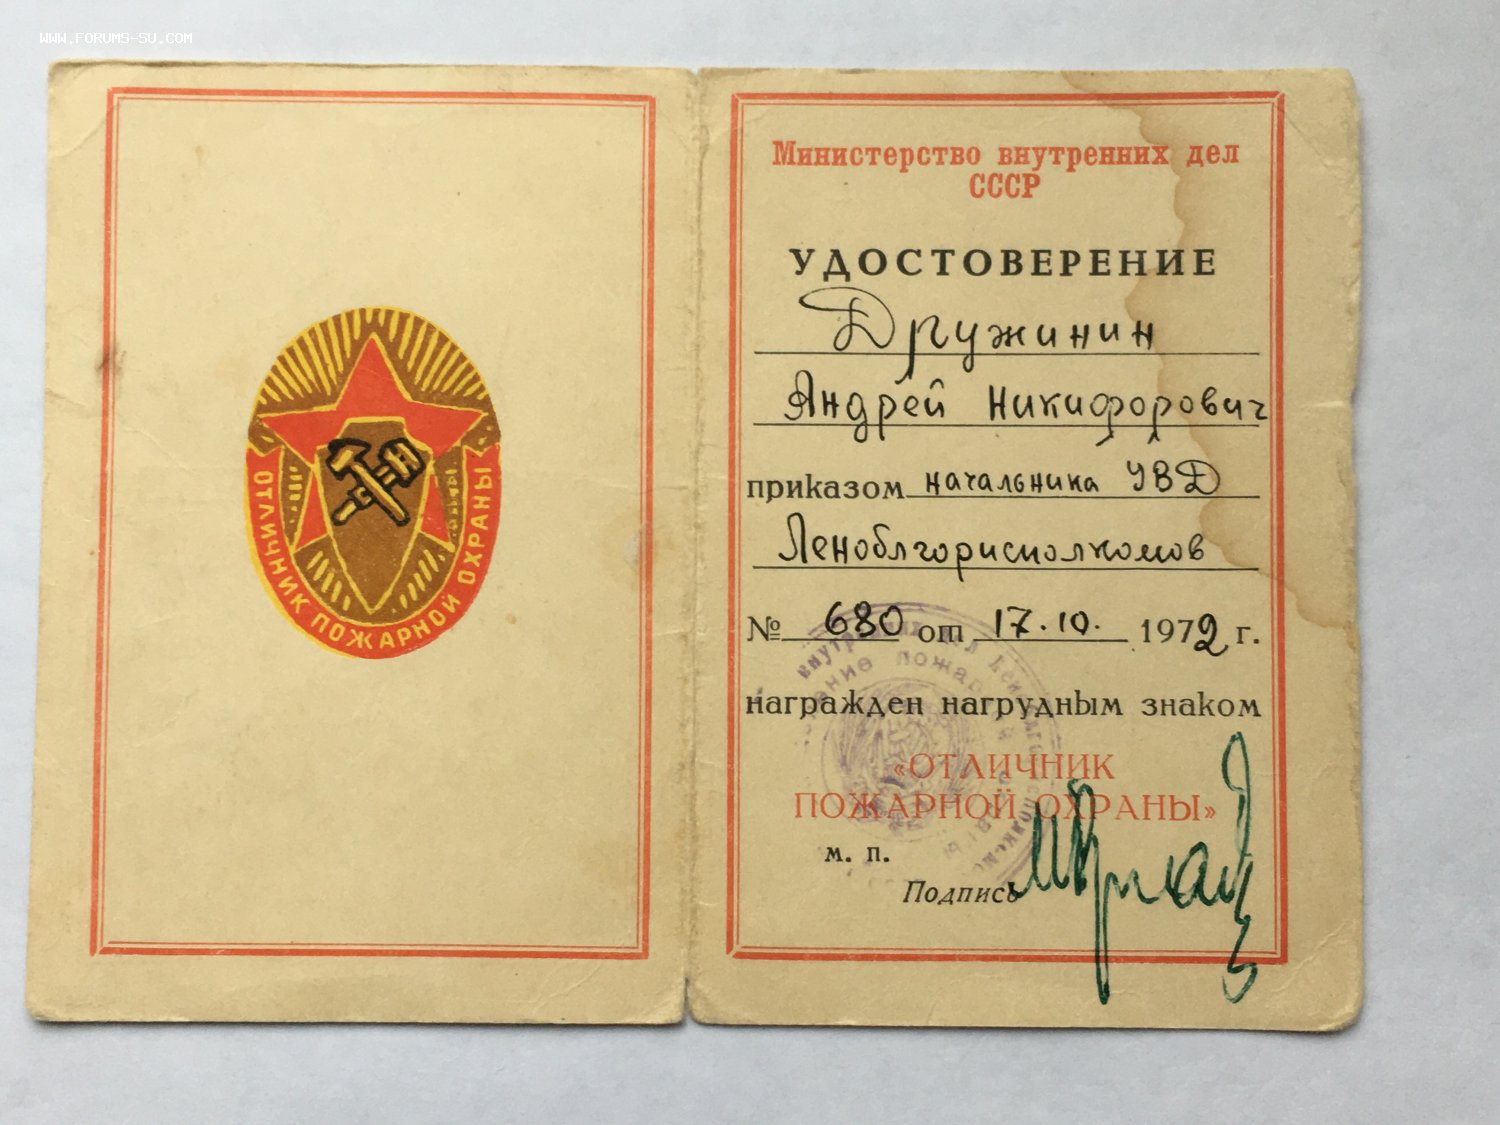 WWW.FORUMS-SU.COM
ОТЛИЧНИК ПОЖАРНОЙ ОХРАНЫ
Министерство внутренних дел
СССР
УДОСТОВЕРЕНИЕ
Дружинин
Андрей Никифорович
приказом начальника УВД
Леноблгорисполкомов
№ 680 от 17.10. 1972 г.
награжден нагрудным знаком
«ОТЛИЧНИК
ПОЖАРНОЙ ОХРАНЫ»
м. п.
Подпись